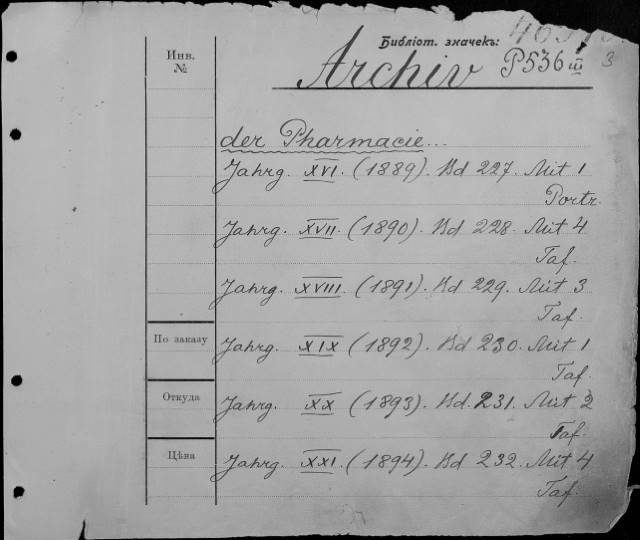 Библіот. значекъ:
Инв.
№
Archiv P536 III
3
der Pharmacie...
Jahrg. XVI. (1889). Bd 227. Mit 1
Portr.
Jahrg. XVII. (1890). Bd 228. Mit 4
Taf.
Jahrg. XVIII. (1891). Bd 229. Mit 3
Taf.
По заказу
Jahrg. XIX (1892). Bd 230. Mit 1
Taf.
Откуда
Jahrg. XX (1893). Bd. 231. Mit 2
Taf.
Цѣна
Jahrg. XXI. (1894). Bd 232. Mit 4
Taf.